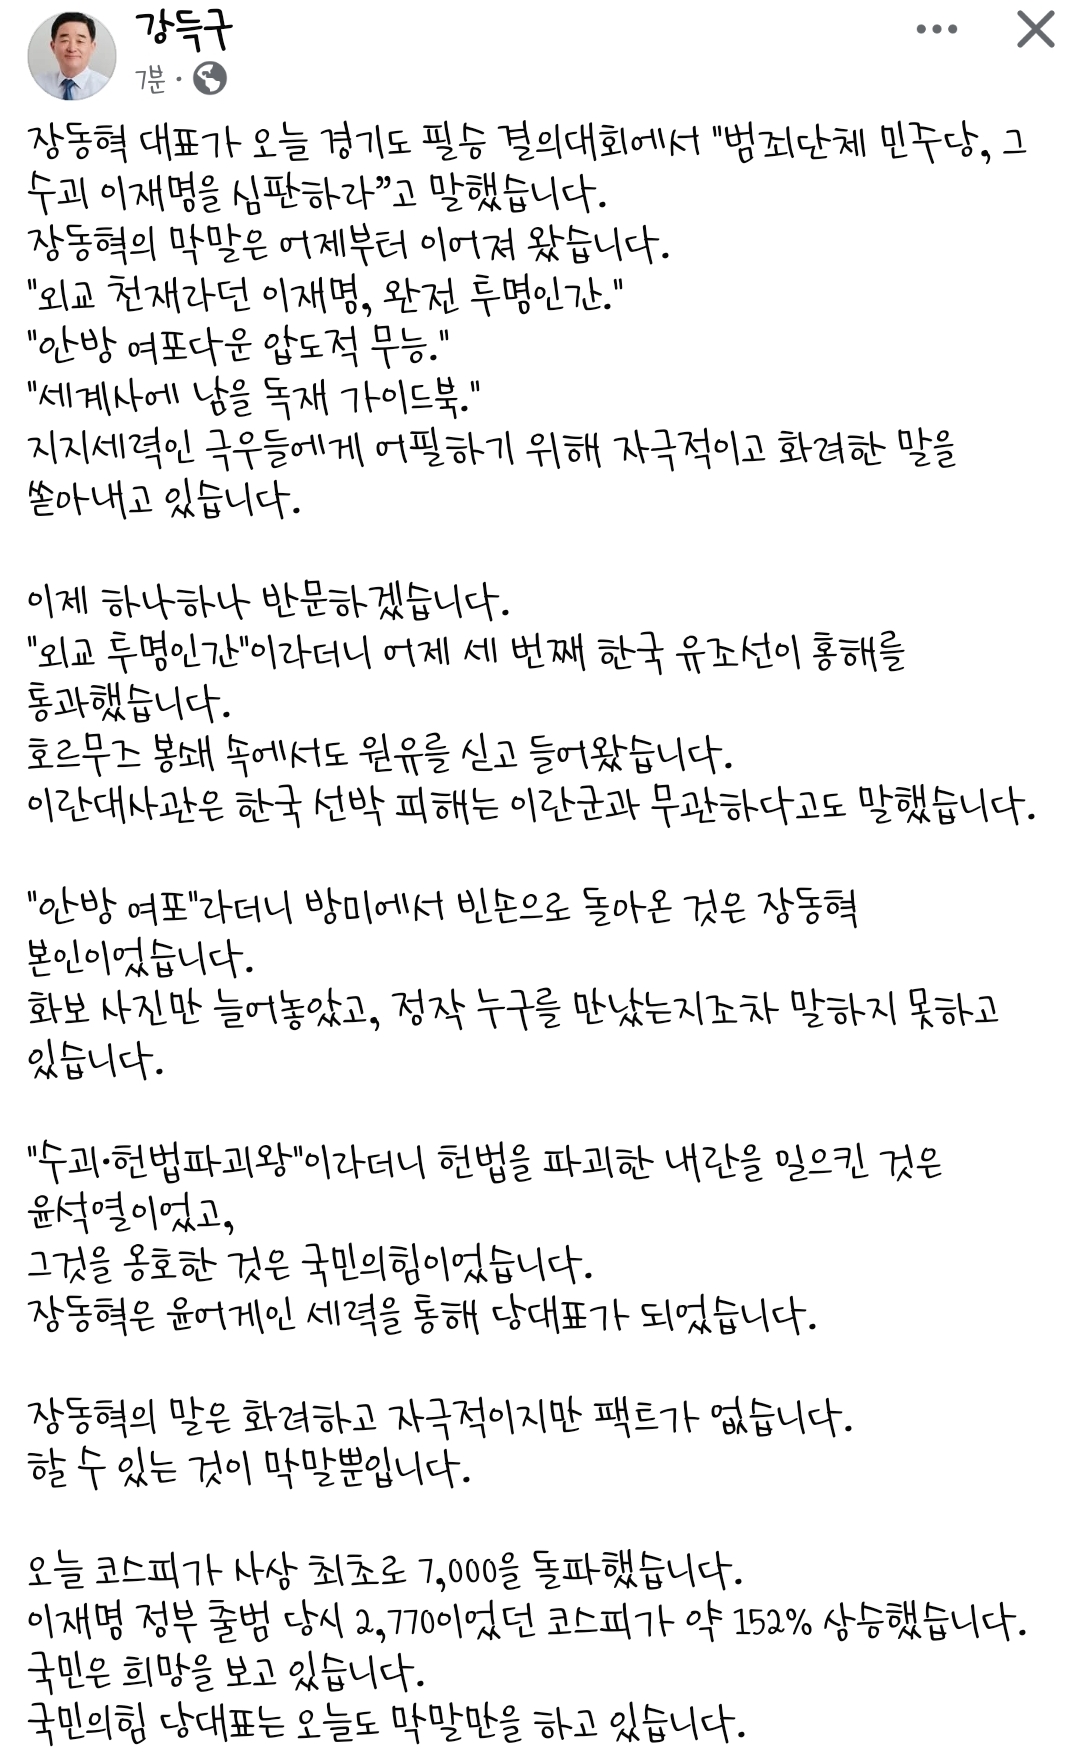 강득구
7분 ·
장동혁 대표가 오늘 경기도 필승 결의대회에서 "범죄단체 민주당, 그
수괴 이재명을 심판하라”고 말했습니다.
장동혁의 막말은 어제부터 이어져 왔습니다.
"외교 천재라던 이재명, 완전 투명인간."
"안방 여포다운 압도적 무능."
"세계사에 남을 독재 가이드북."
지지세력인 극우들에게 어필하기 위해 자극적이고 화려한 말을
쏟아내고 있습니다.
이제 하나하나 반문하겠습니다.
"외교 투명인간"이라더니 어제 세 번째 한국 유조선이 홍해를
통과했습니다.
호르무즈 봉쇄 속에서도 원유를 싣고 들어왔습니다.
이란대사관은 한국 선박 피해는 이란군과 무관하다고도 말했습니다.
"안방 여포"라더니 방미에서 빈손으로 돌아온 것은 장동혁
본인이었습니다.
화보 사진만 늘어놓았고, 정작 누구를 만났는지조차 말하지 못하고
있습니다.
"수괴·헌법파괴왕"이라더니 헌법을 파괴한 내란을 일으킨 것은
윤석열이었고,
그것을 옹호한 것은 국민의힘이었습니다.
장동혁은 윤어게인 세력을 통해 당대표가 되었습니다.
장동혁의 말은 화려하고 자극적이지만 팩트가 없습니다.
할 수 있는 것이 막말뿐입니다.
오늘 코스피가 사상 최초로 7,000을 돌파했습니다.
이재명 정부 출범 당시 2,770이었던 코스피가 약 152% 상승했습니다.
국민은 희망을 보고 있습니다.
국민의힘 당대표는 오늘도 막말만을 하고 있습니다.